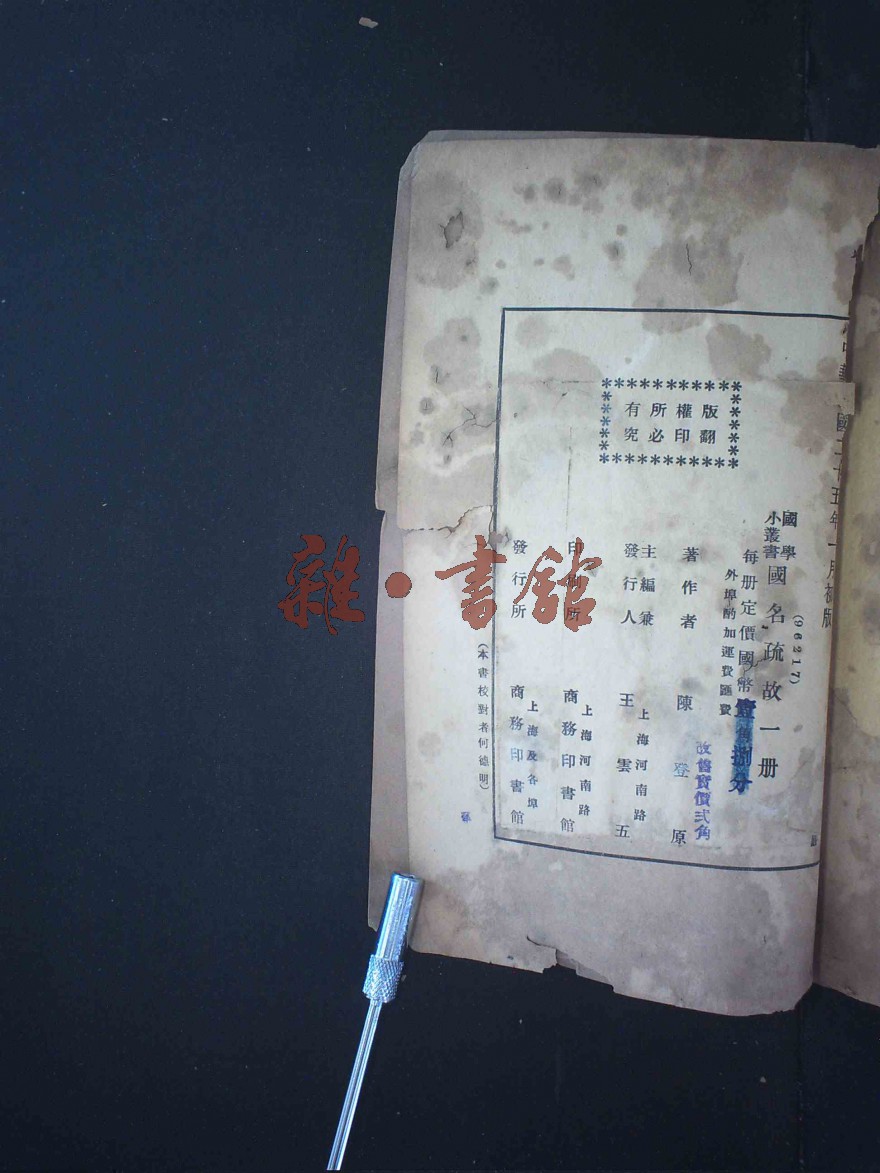 國二十五年一月初版
(96217)
國學
小叢書
國名疏故一册
每册定價國幣壹角捌分
外埠酌加運費匯費
改售實價弍角
著作者 陳登原
主編兼
發行人
上海河南路
王雲五
印刷所
上海河南路
商務印書館
發行所
上海及各埠
商務印書館
(本書校對者何德明)
版權所有
翻印必究
雜·書館